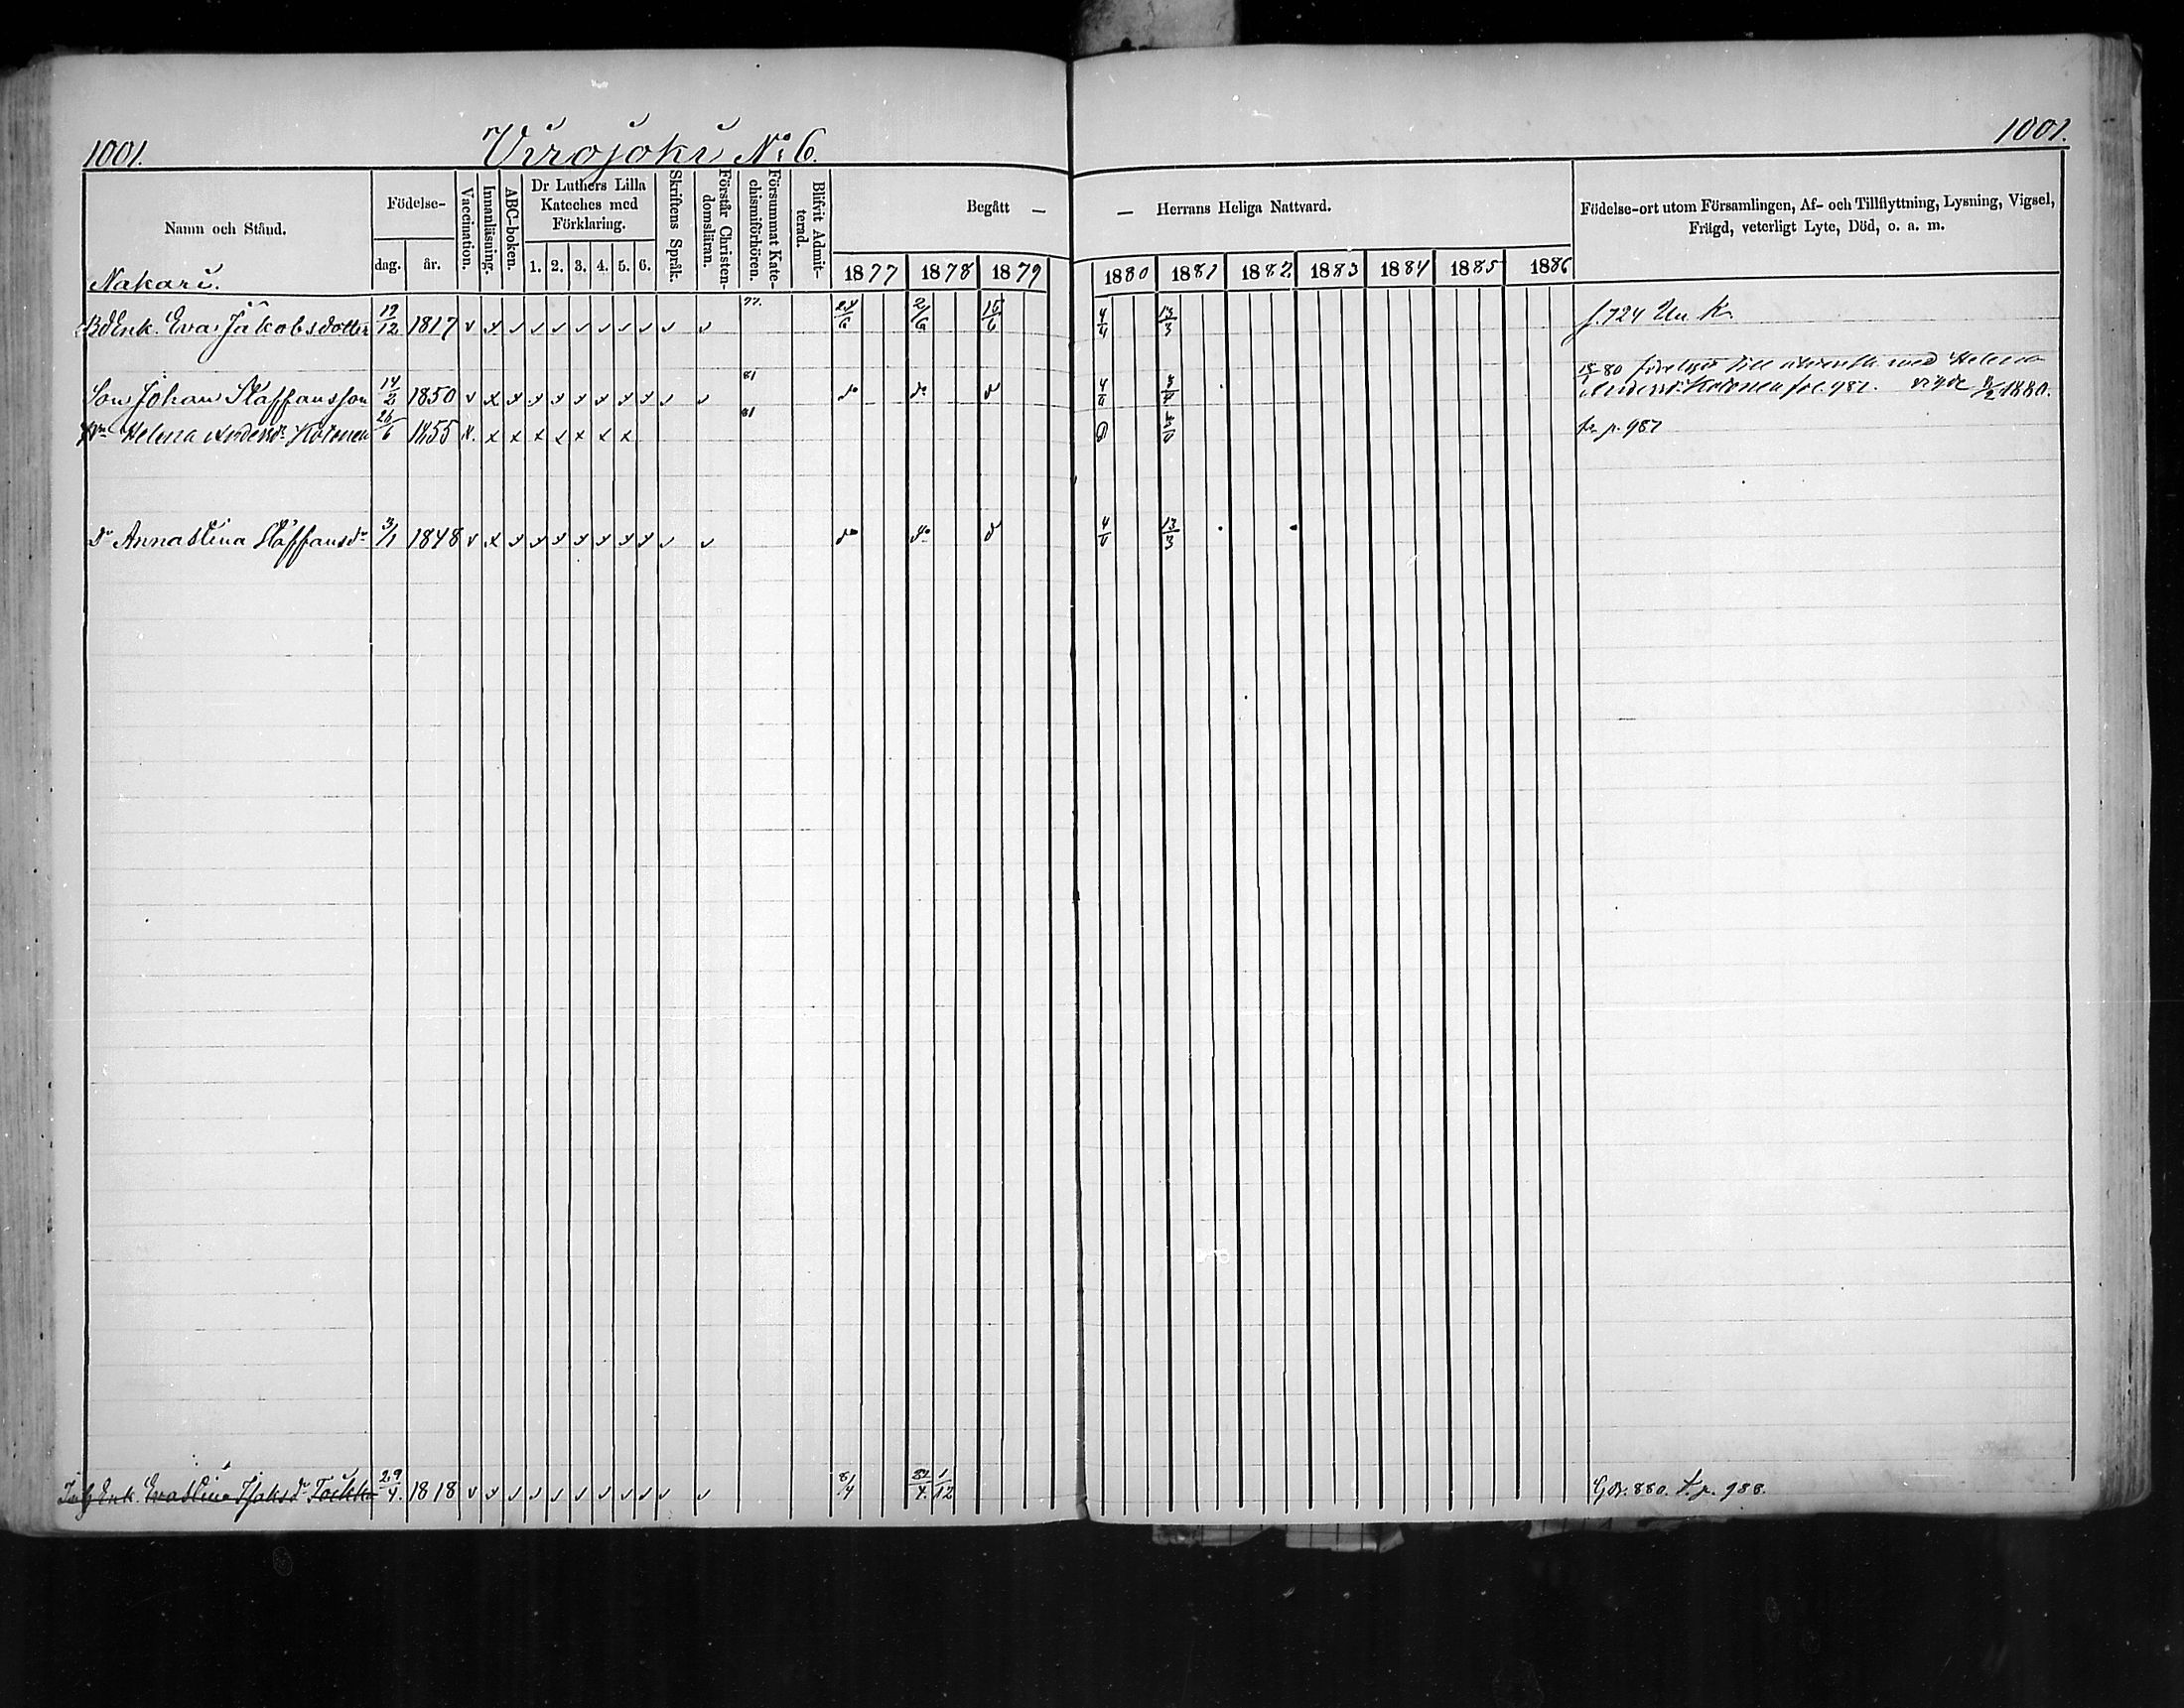 1001.
Virojoki No 6.
1001.
Namn och Stånd.
Födelse-
dag.
år.
Vaccination.
Innanläsning.
ABC-boken.
Dr Luthers Lilla
Kateches med
Förklaring.
1. 2. 3. 4. 5. 6.
Skriftens Språk.
Förstår Christen-
domsläran.
Försummat Kate-
chismiförhören.
Blifvit Admit-
terad.
Begått —
— Herrans Heliga Nattvard.
1877 1878 1879
1880 1881 1882 1883 1884 1885 1886
Födelse-ort utom Församlingen, Af- och Tillflyttning, Lysning, Vigsel,
Frägd, veterligt Lyte, Död, o. a. m.
Nakari.
Enk. Eva Jakobsdotter 19/12 1817 v x v v v v v v v v v 77. 24/6 2/6 15/6 4/4 13/3 f. 724
Son Johan Staffansson 14/2 1850 v x x x x x x x x v v 81 do do d
80 till med Helena
Andersdr Kotonen fol. 987. 1880.
Helena Andersdr Kotonen 26/6 1855 x. x x x x x x x 81 fr. p. 987
Dr Anna Stina Staffansdr 3/1 1848 v x x x x x x x x v v do do d 13/3
Enk. Eva Stina Isaksdr 29/4. 1818 v v v v v v v v v v v 8/4 1/12 880. t. p. 988.